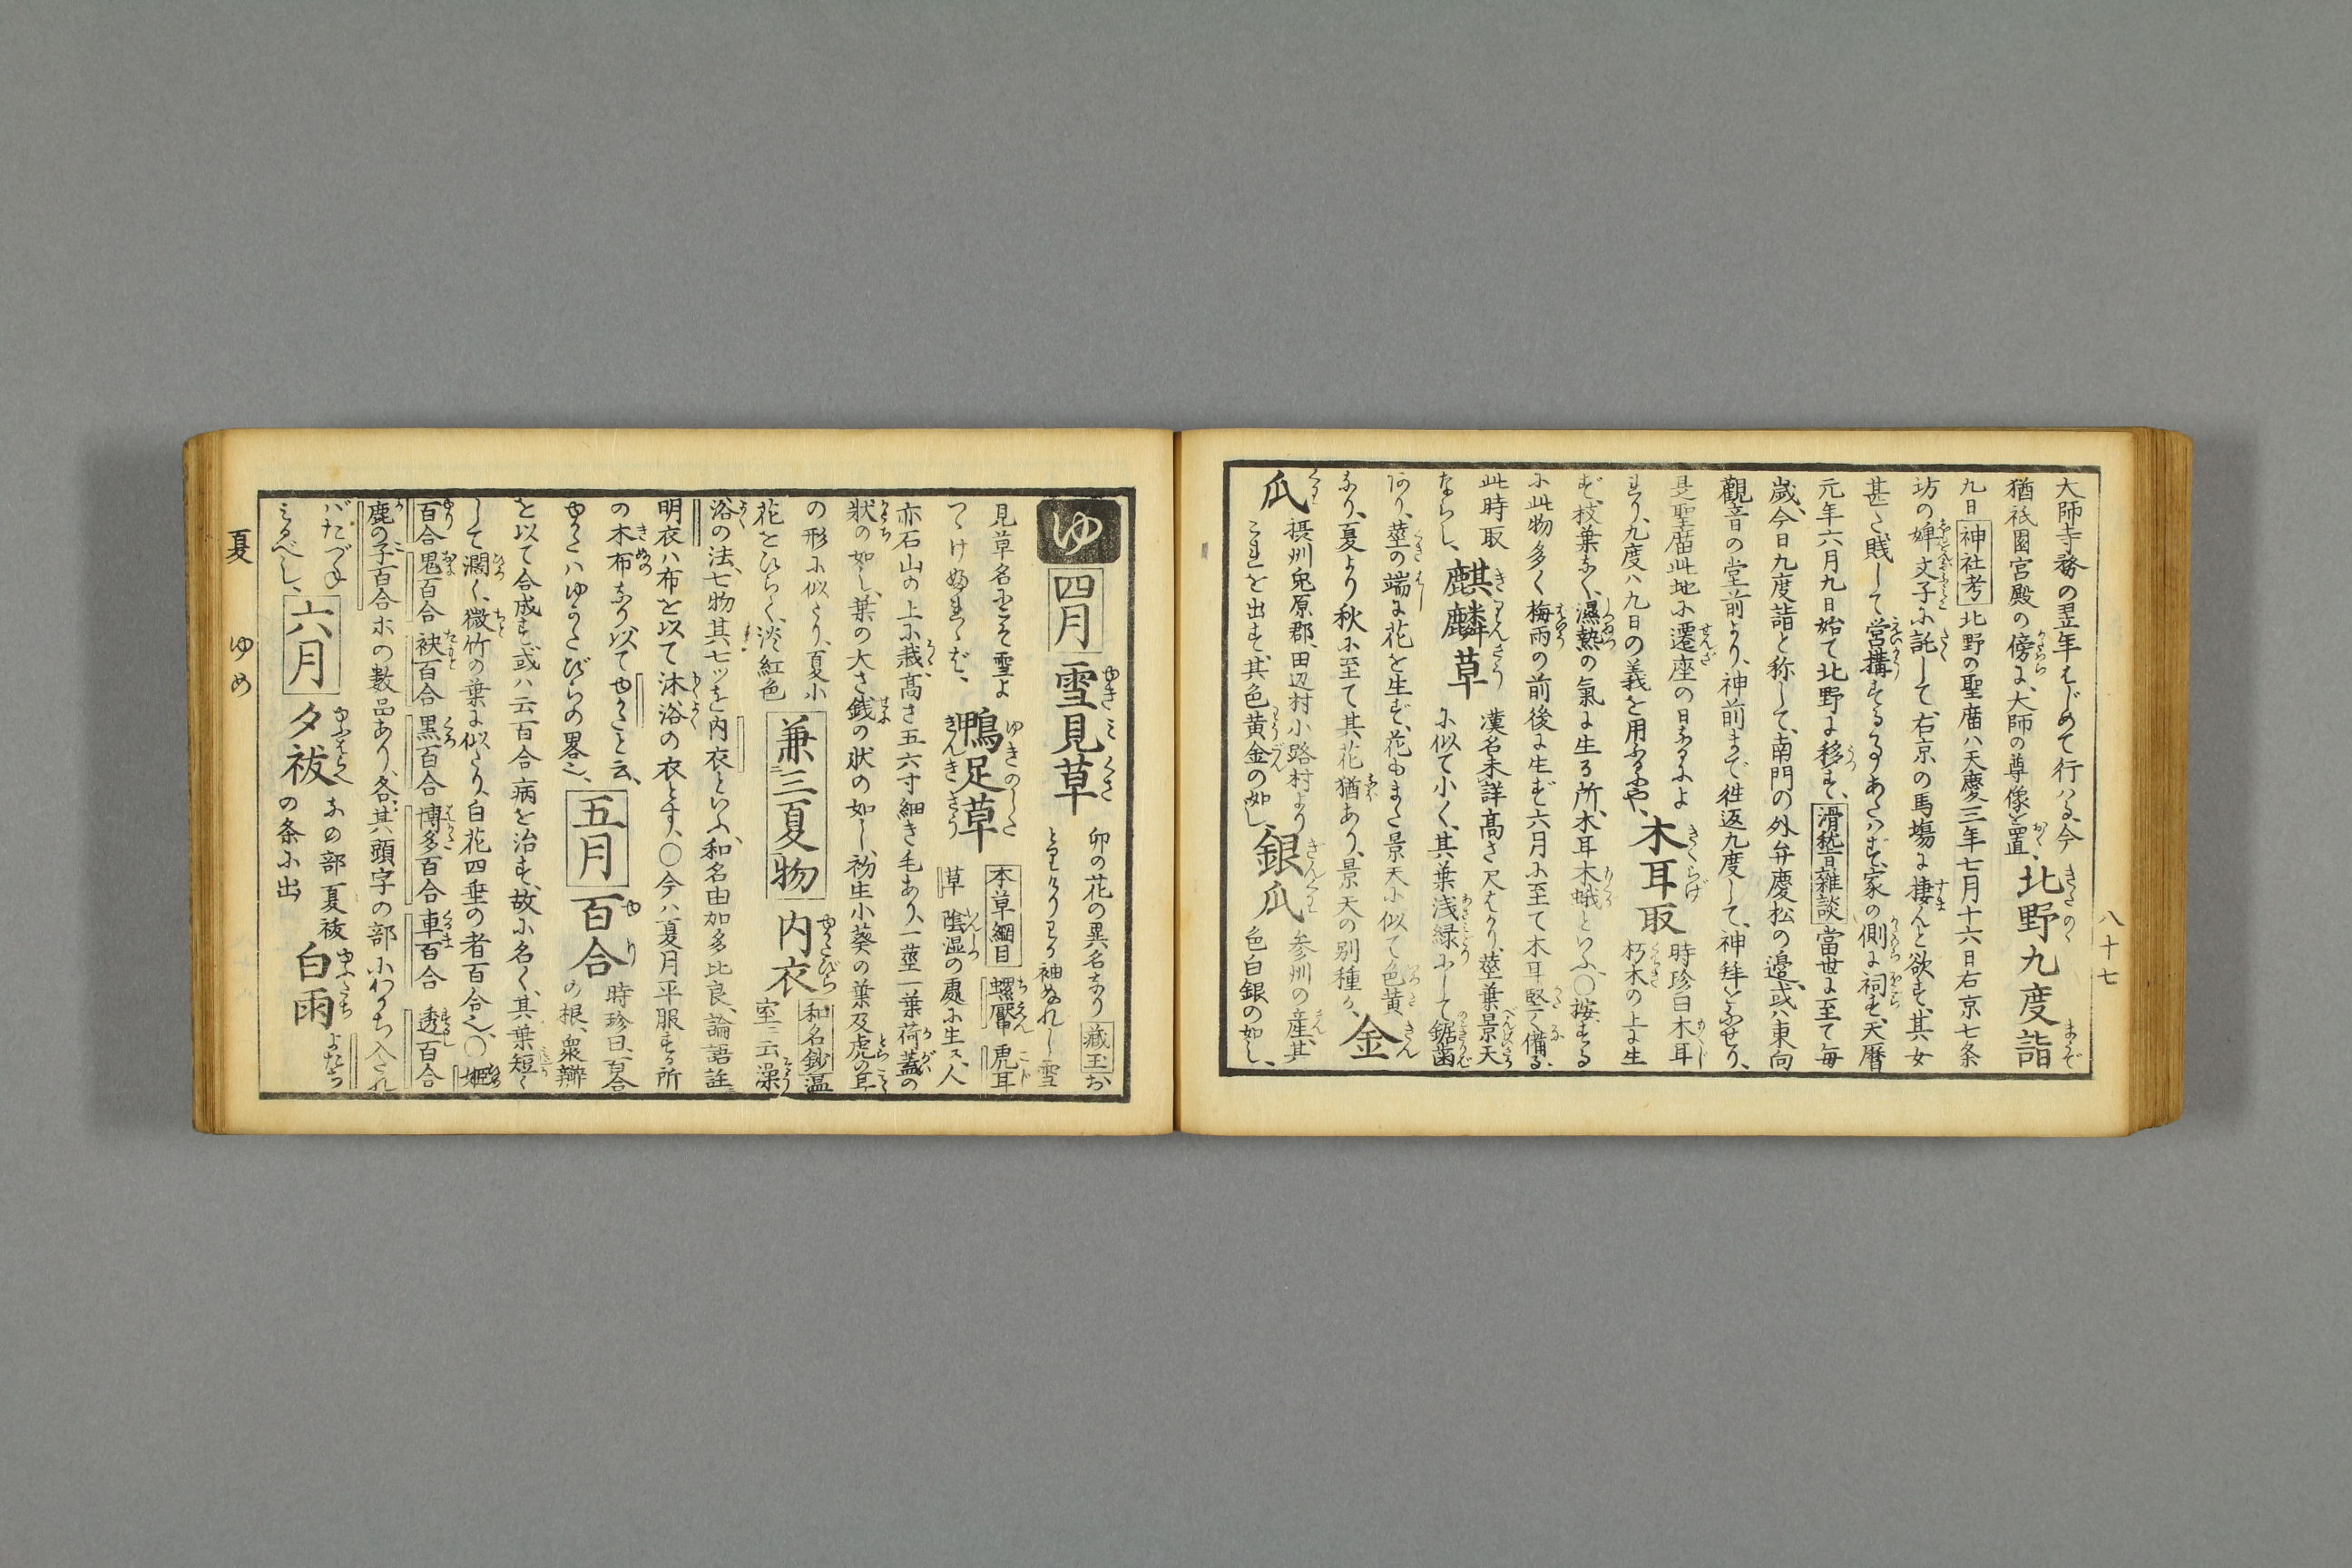 八十七
大師寺務の翌年はじめて行はる、今
猶祇園宮殿の傍に、大師の尊像を置、北野九度詣
九日神社考北野の聖廟ハ天慶三年七月十六日右京七条
坊の婢文子に託して、右京の馬場に棲んと欲す、其女
甚だ賎して営構するにあたはず、家の側に祠す、天暦
元年六月九日始て北野に移す、滑稽雑談當世に至て毎
歳、今日九度詣と称して、南門の外弁慶松の邉、或ハ東向
觀音の堂前より、神前まで徃返九度して、神拜をなせり、
是聖廟此地に遷座の日なるによ
れり、九度ハ九日の義を用ふるや、木耳取時珍曰木耳
朽木の上に生
ず、枝葉なく、濕熱の氣に生る所、木耳木蛾といふ、〇按ずる
に此物多く梅雨の前後に生ず六月に至て木耳堅て備る、
此時取
ならし、麒麟草漢名未詳高さ尺ばかり、莖葉景天
に似て小く、其葉浅緑にして鋸歯
あり、莖の端に花を生ず、花もまた景天に似て色黄
なり、夏より秋に至て其花猶あり、景天の別種か、金
瓜摂州兎原郡、田辺村小路村より
これを出す、其色黄金の如し、銀瓜参州の産、其
色白銀の如し、
ゆ四月雪見草卯の花の異名なり藏玉お
とにけりわが袖ぬれし雪
見草名にこそ雪よ
つゝけぬれゝど、鴨足草本草綱目螺厴虎耳
草陰湿の處に生ズ、人
亦石山の上に栽、高さ五六寸細き毛あり、一莖一葉荷蓋の
状の如し、葉の大さ銭の状の如し、初生小葵の葉及虎の耳
の形に似たり、夏小
花をひらく、淡紅色兼三夏物内衣和名鈔温
室云澡
浴の法、七物其七ッを内衣といふ、和名由加多比良、論語註
明衣ハ布を以て沐浴の衣とす、〇今ハ夏月平服する所
の木布なり以てゆかたと云、
ゆかたハゆかたびらの畧也、五月百合時珍曰、百合
の根、衆瓣
を以て合成す、或ハ云百合病を治す、故に名く、其葉短く
して濶く、微竹の葉に似たり、白花四垂の者百合也、〇姫
百合鬼百合袂百合黒百合博多百合車百合透百合
鹿の子百合ホの數品あり、各其頭字の部にわかち入されバたづね
みるべし、六月夕祓なの部夏祓
の条に出白雨よだち
夏
ゆめ